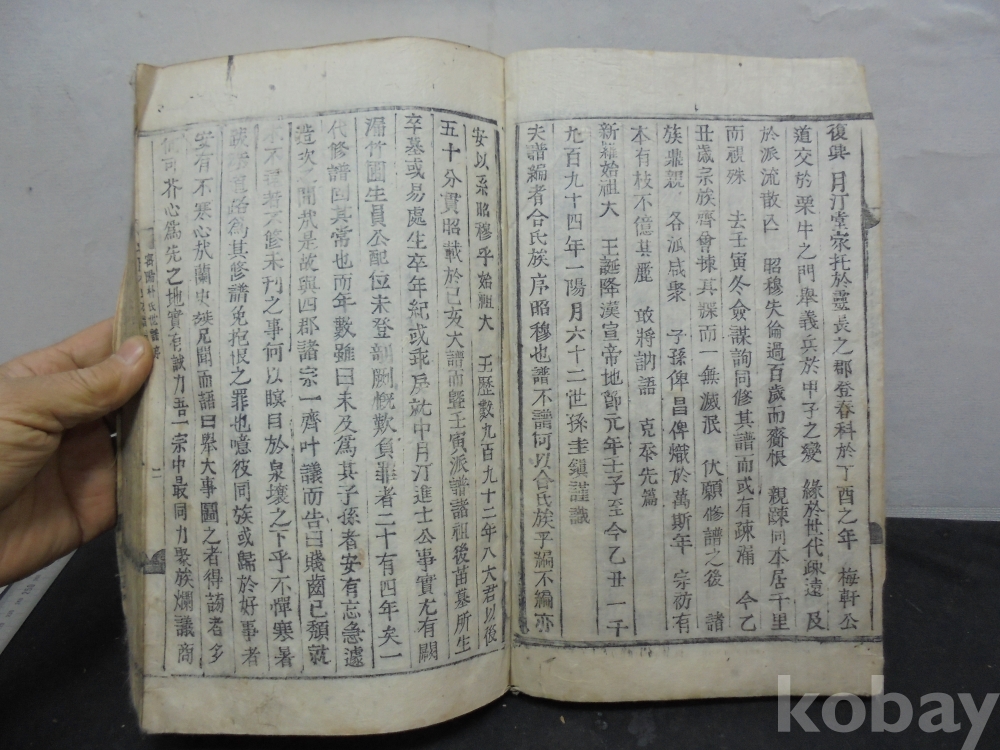 復興 月汀堂家托於靈長之郡登春科於丁酉之年 梅軒公
道交於栗牛之門舉義兵於甲子之變 緣於世代疎遠 及
於派流散亾 昭穆失倫過百歲而齎恨 親踈同本居千里
而視殊 去壬寅冬僉謀詢同修其譜而或有疎漏 今乙
丑歲宗族齊會揀其繆而一無滅泯 伏願修譜之後 諸
族鼎親 各派咸聚 子孫俾昌俾熾於萬斯年 宗祊有
本有枝不億其麗 敢將訥語 克恭先篇
新羅始祖大 王誕降漢宣帝地節元年壬子至今乙丑一千
九百九十四年一陽月六十二世孫圭鎭謹識
夫譜編者合氏族 序昭穆也譜不譜何以合氏族乎編不編亦
安以系昭穆乎始祖大 王歷數九百九十二年八大君以後
五十分貫昭載於己亥大譜而曁壬寅派譜諸祖後苗墓所生
卒墓或易處生卒年紀或乖戾就中月汀進士公事實尤有闕
漏竹圃生員公配位未登剞劂慨歎負罪者二十有四年矣一
代修譜固其常也而年數雖曰未及爲其子孫者安有忘急遽
造次之間哉是故與四郡諸宗一齊叶議而告曰賤齒已頹就
木不遠者不修未刊之事何以瞑目於泉壤之下乎不憚寒暑
跋涉道路爲其修譜免抱恨之罪也噫彼同族或歸於好事者
安有不寒心哉蘭史 尼聞而語曰舉大事圖之者得謗者多
何可芥心爲先之地實有誠力吾一宗中最同力聚族爛議商
密陽朴氏世譜序
二
kobay